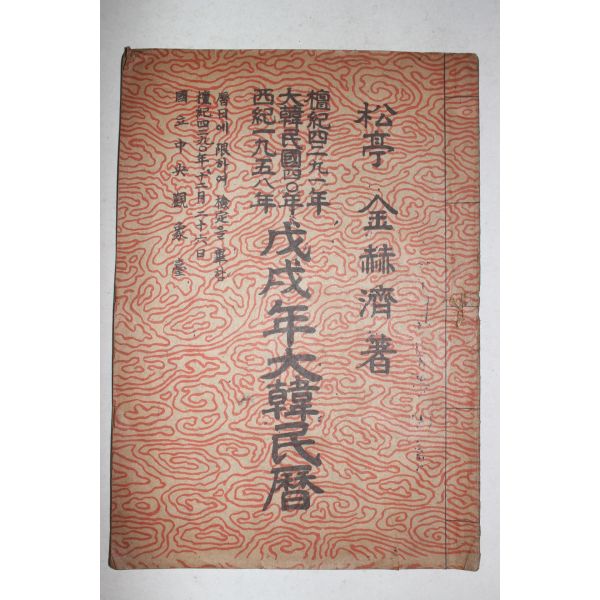 松亭 金赫濟 著
檀紀四二九一年
大韓民國四〇年
西紀一九五八年
戊戌年大韓民曆
曆日에 限하여 檢定을 畢함
檀紀四二九〇年 十二月 二十六日
國立中央觀象臺